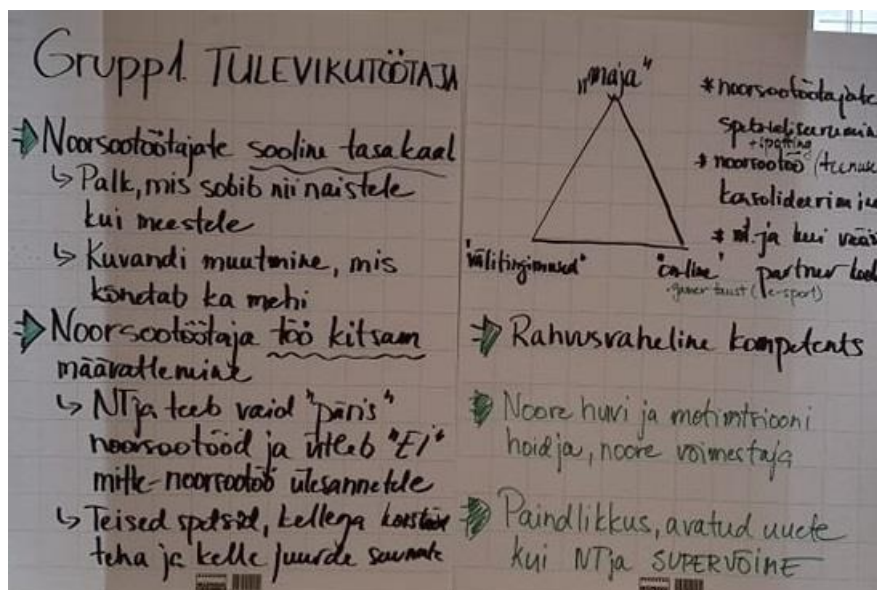 Grupp 1. TULEVIKUTÖÖTAJA
⇒ Noorsootöötajate sooline tasakaal
↳ Palk, mis sobib nii naistele
kui meestele
↳ Kuvandi muutmine, mis
kõnetab ka mehi
⇒ Noorsootöötaja töö kitsam
määratlemine
↳ NTja teeb vaid "päris"
noorsootööd ja ütleb "EI"
mitte-noorsootöö ülesannetele
↳ Teised spetsid, kellega koostööd
teha ja kelle juurde suunata
"maja"
"välitingimused"
"online"
gamer taust (e-sport)
* noorsootöötajate
spetsialiseerumin
+ spotting
* noorsootöö (teenus
konsolideerimine
* nt.ja kui
partner
⇒ Rahvusvaheline kompetents
⇒ Noore huvi ja motivatsiooni
hoidja, noore võimestaja
⇒ Paindlikkus, avatud uuele
kui NTja SUPERVÕIME